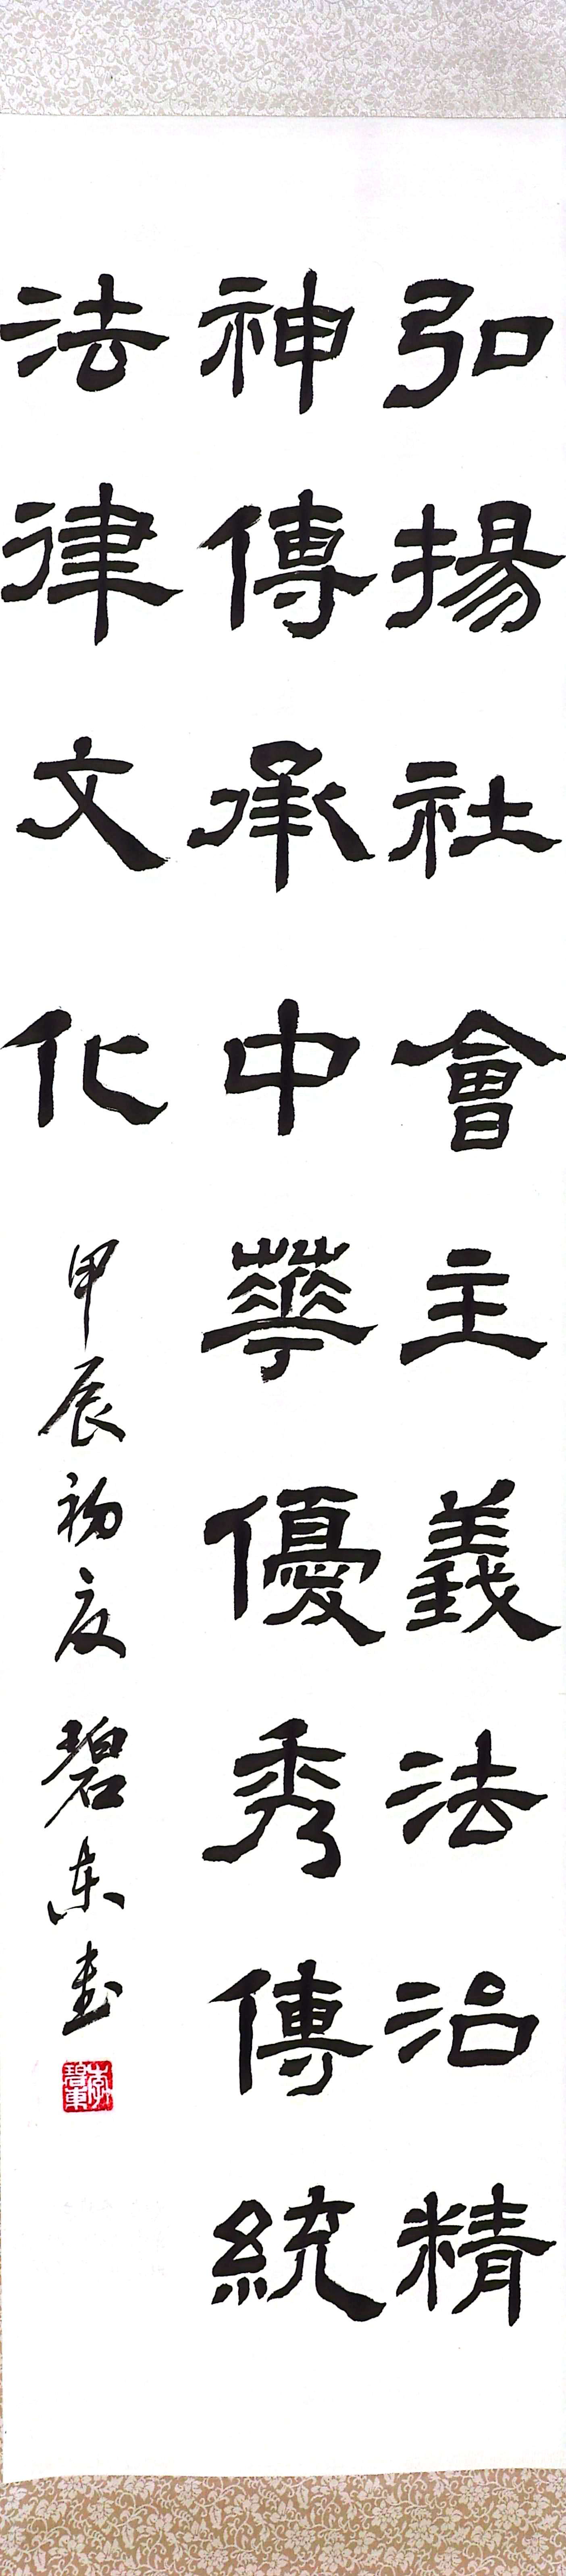 弘揚社會主義法治精
神傳承中華優秀傳統
法律文化
甲辰初夏碧東書
李碧東